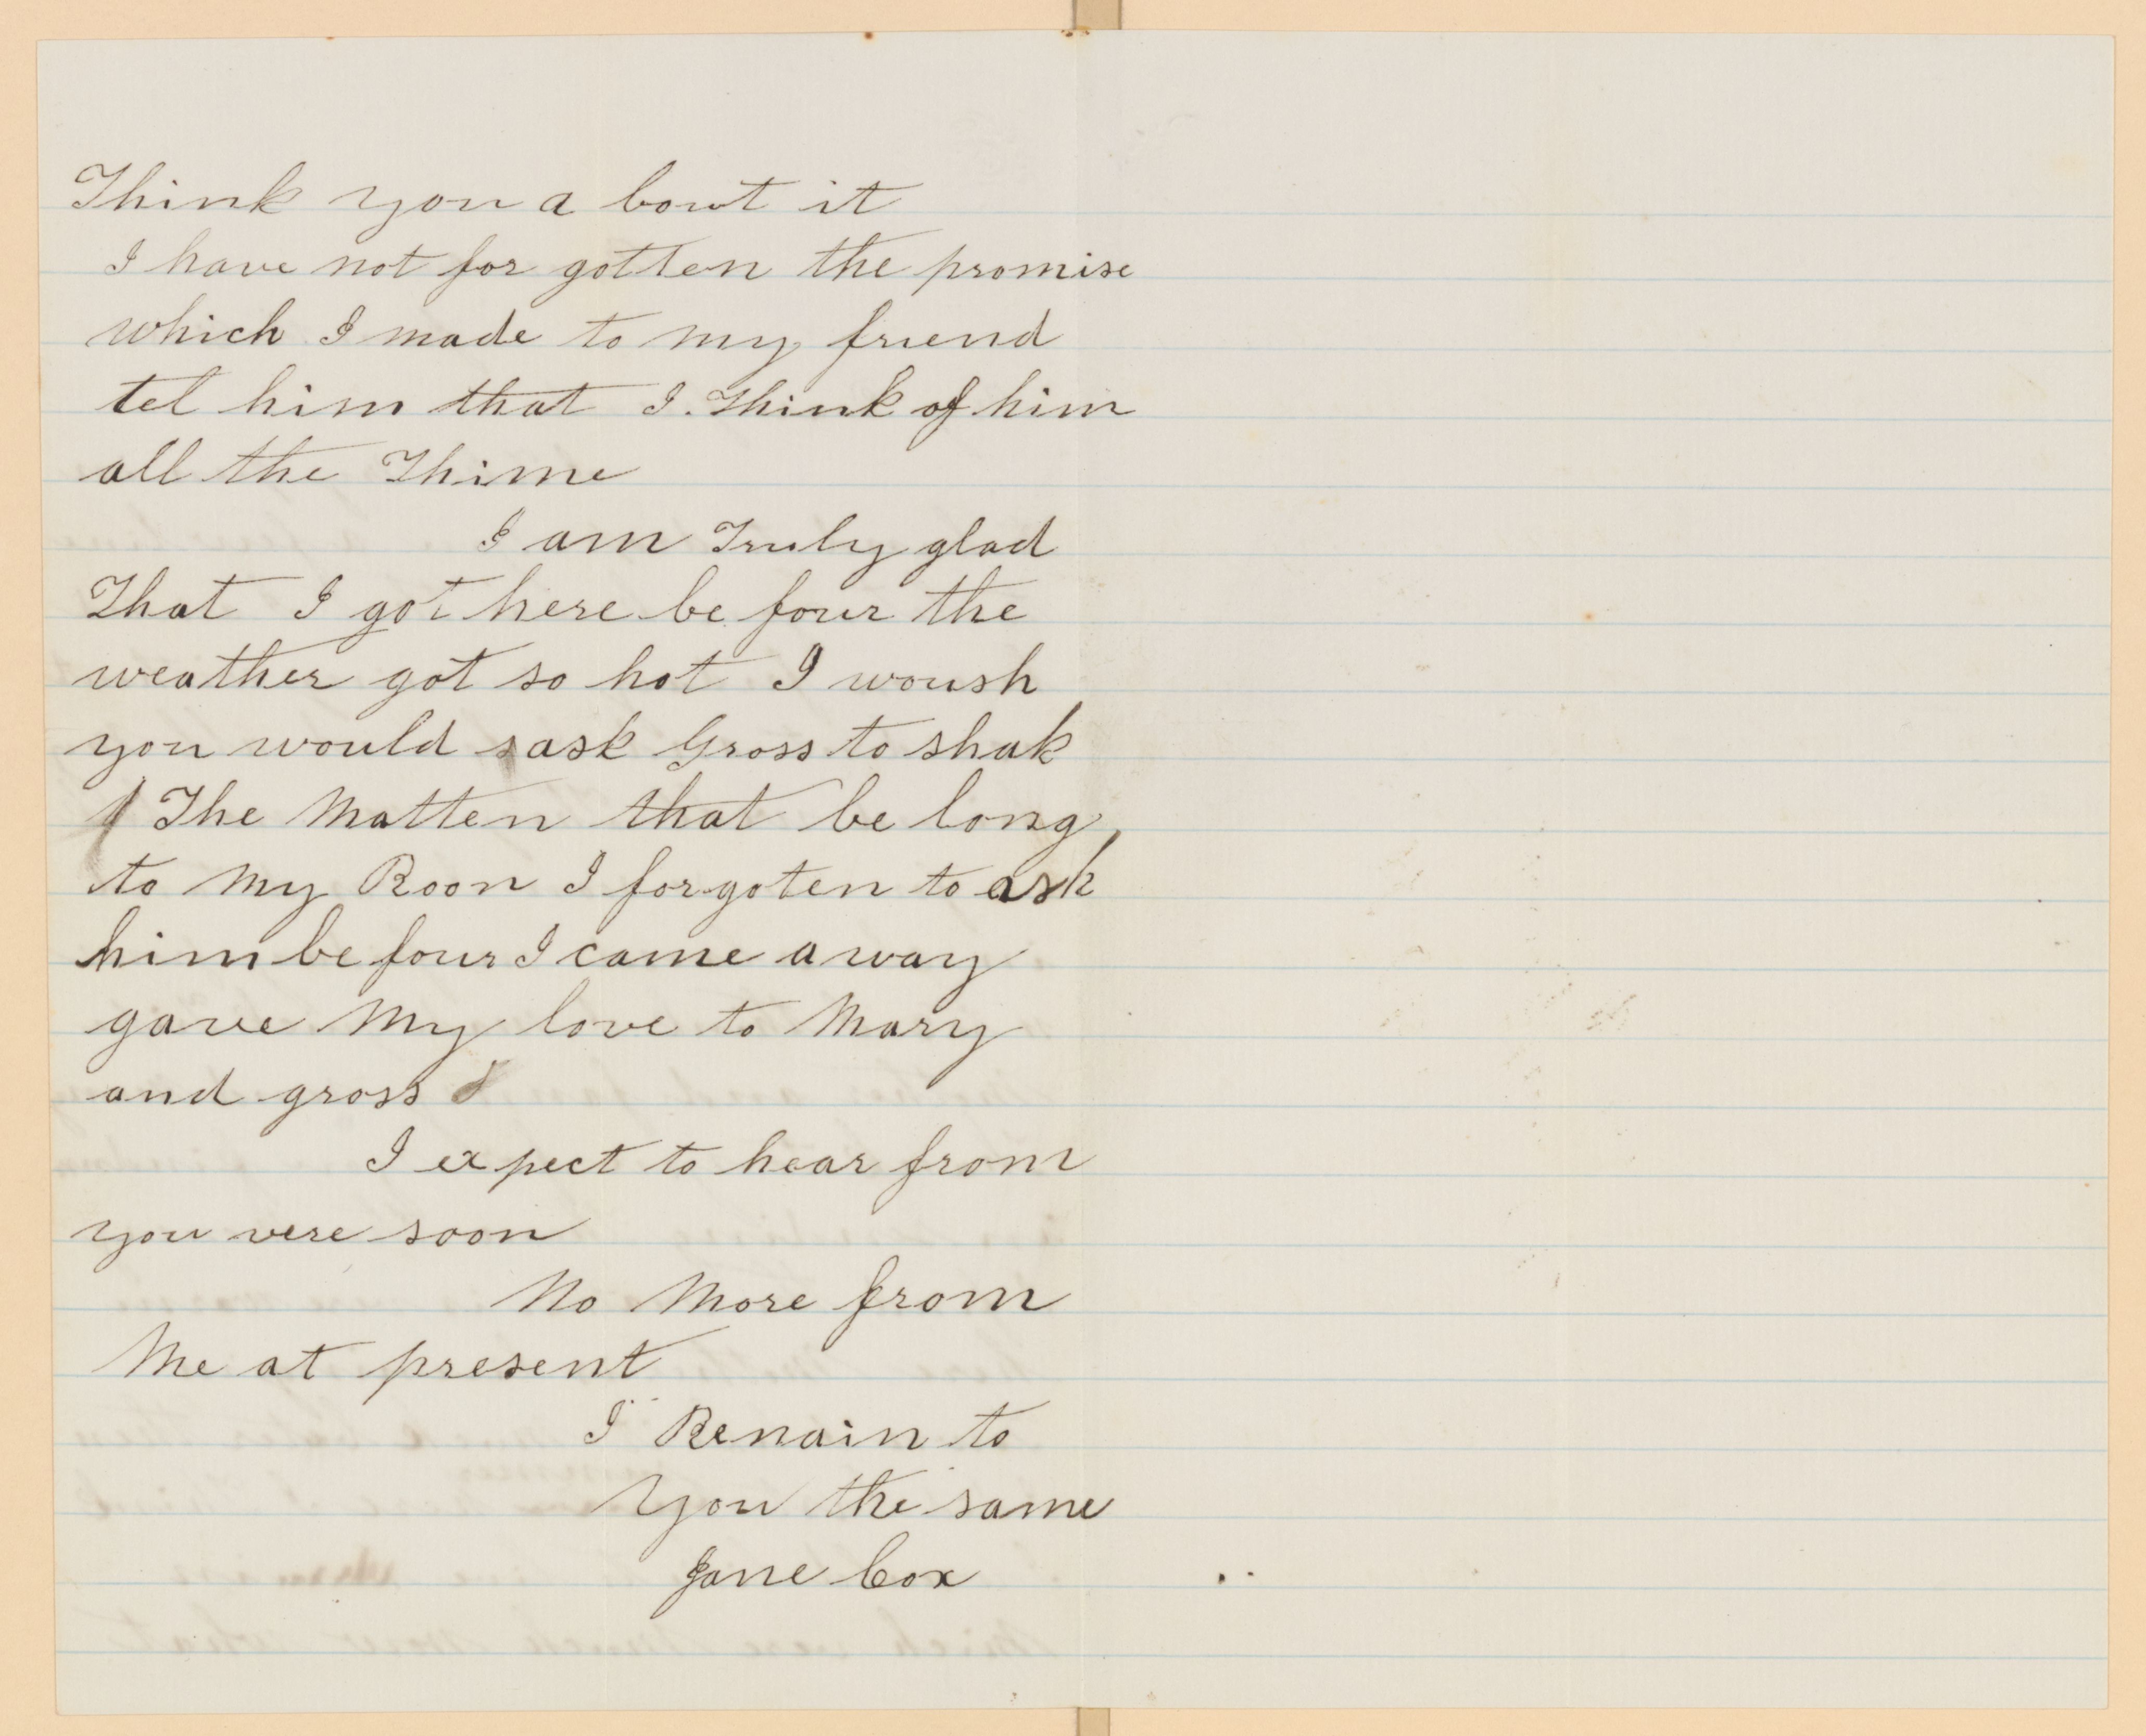 Think you a bout it
I have not for gotten the promise
which I made to my friend
tel him that I. Think of him
all the Thime
I am Truly glad
That I got here be four the
weather got so hot I woush
you would ask Gross to shak
The Matten that be long
to my Roon I forgoten to ask
him be four I came a way
gave My love to Mary
and gross
I expect to hear from
you vere soon
No More from
Me at present
I Renain to
You the same
Jane Cox